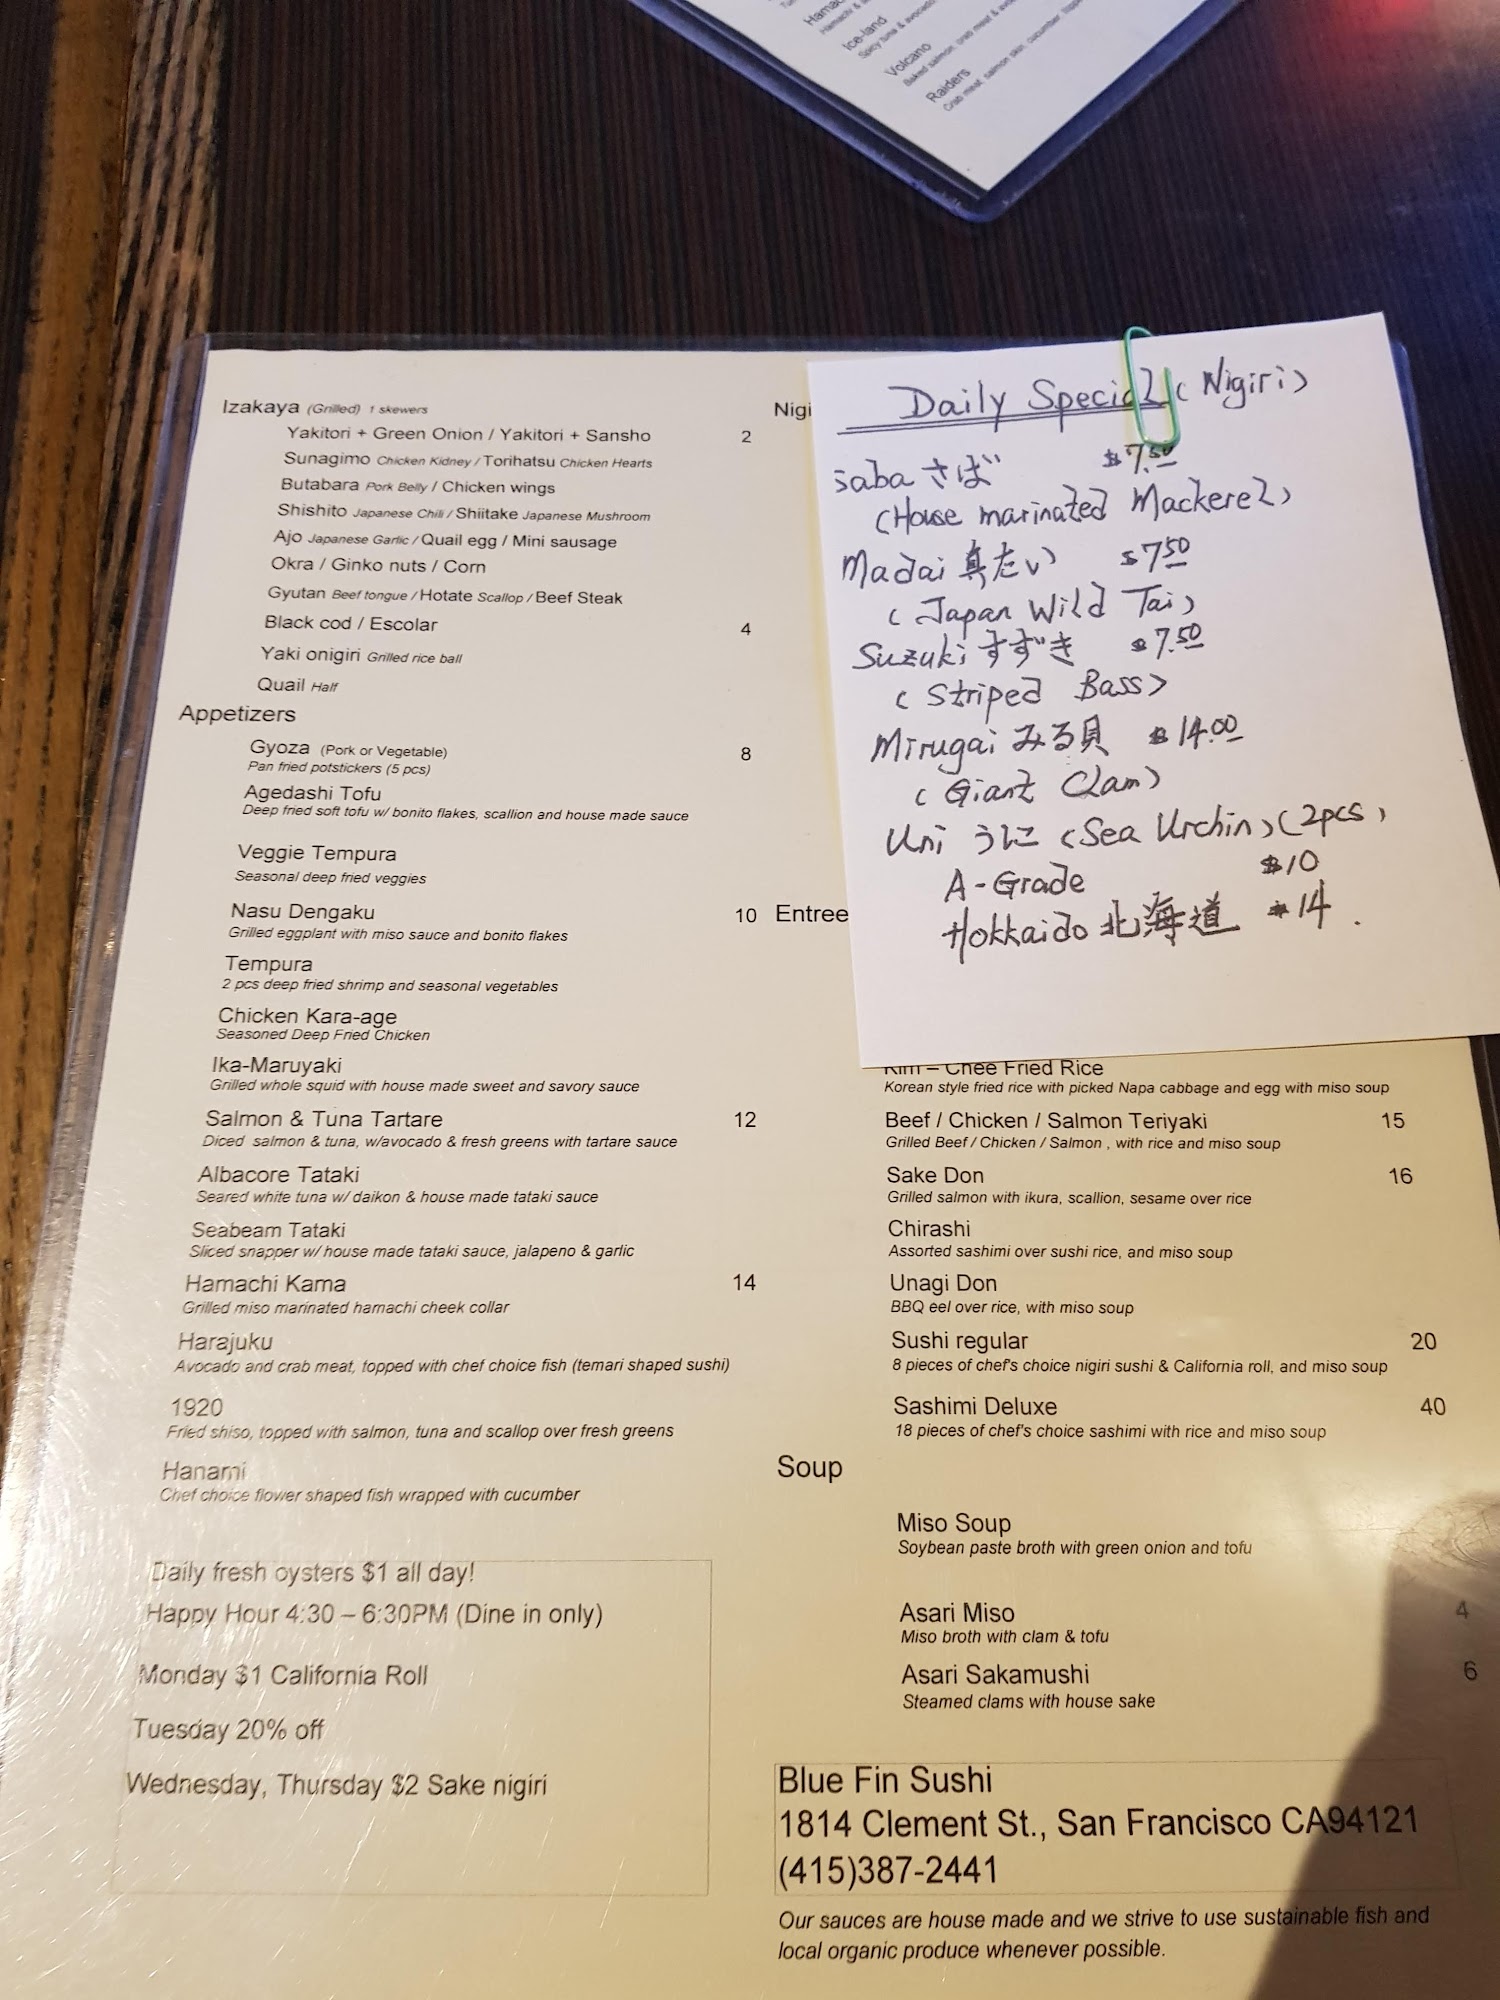 Hamac
Ice-land
Spicy tuna & avocado
Volcano
Baked salmon, crab meat & avo
Raiders
Crab meat, salmon skin, cucumber, topp
Izakaya (Grilled) 1 skewers
Yakitori + Green Onion / Yakitori + Sansho 2
Sunagimo Chicken Kidney / Torihatsu Chicken Hearts
Butabara Pork Belly / Chicken wings
Shishito Japanese Chili / Shiitake Japanese Mushroom
Ajo Japanese Garlic / Quail egg / Mini sausage
Okra / Ginko nuts / Corn
Gyutan Beef tongue / Hotate Scallop / Beef Steak
Black cod / Escolar 4
Yaki onigiri Grilled rice ball
Quail Half
Appetizers
Gyoza (Pork or Vegetable) 8
Pan fried potstickers (5 pcs)
Agedashi Tofu
Deep fried soft tofu w/ bonito flakes, scallion and house made sauce
Veggie Tempura
Seasonal deep fried veggies
Nasu Dengaku 10
Grilled eggplant with miso sauce and bonito flakes
Tempura
2 pcs deep fried shrimp and seasonal vegetables
Chicken Kara-age
Seasoned Deep Fried Chicken
Ika-Maruyaki
Grilled whole squid with house made sweet and savory sauce
Salmon & Tuna Tartare 12
Diced salmon & tuna, w/avocado & fresh greens with tartare sauce
Albacore Tataki
Seared white tuna w/ daikon & house made tataki sauce
Seabeam Tataki
Sliced snapper w/ house made tataki sauce, jalapeno & garlic
Hamachi Kama 14
Grilled miso marinated hamachi cheek collar
Harajuku
Avocado and crab meat, topped with chef choice fish (temari shaped sushi)
1920
Fried shiso, topped with salmon, tuna and scallop over fresh greens
Hanami
Chef choice flower shaped fish wrapped with cucumber
Daily fresh oysters $1 all day!
Happy Hour 4:30 – 6:30PM (Dine in only)
Monday $1 California Roll
Tuesday 20% off
Wednesday, Thursday $2 Sake nigiri
Nigi
Daily Special (Nigiri)
saba さば $7.50
(House marinated Mackerel)
Madai 真たい $7.50
(Japan Wild Tai)
Suzuki すずき $7.50
(Striped Bass)
Mirugai みる貝 $14.00
(Giant Clam)
Uni うに (Sea Urchin) (2pcs)
A-Grade $10
Hokkaido 北海道 $14.
Entree
Kim – Chee Fried Rice
Korean style fried rice with picked Napa cabbage and egg with miso soup
Beef / Chicken / Salmon Teriyaki 15
Grilled Beef / Chicken / Salmon , with rice and miso soup
Sake Don 16
Grilled salmon with ikura, scallion, sesame over rice
Chirashi
Assorted sashimi over sushi rice, and miso soup
Unagi Don
BBQ eel over rice, with miso soup
Sushi regular 20
8 pieces of chef's choice nigiri sushi & California roll, and miso soup
Sashimi Deluxe 40
18 pieces of chef's choice sashimi with rice and miso soup
Soup
Miso Soup
Soybean paste broth with green onion and tofu
Asari Miso 4
Miso broth with clam & tofu
Asari Sakamushi 6
Steamed clams with house sake
Blue Fin Sushi
1814 Clement St., San Francisco CA94121
(415)387-2441
Our sauces are house made and we strive to use sustainable fish and
local organic produce whenever possible.